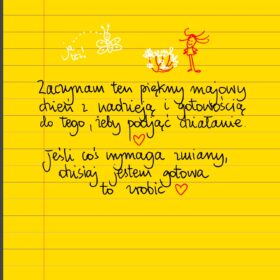 ja to!
Zaczynam ten piękny majowy
dzień z nadzieją i gotowością
do tego, żeby podjąć działanie
Jeśli coś wymaga zmiany,
dzisiaj jestem gotowa
to zrobić